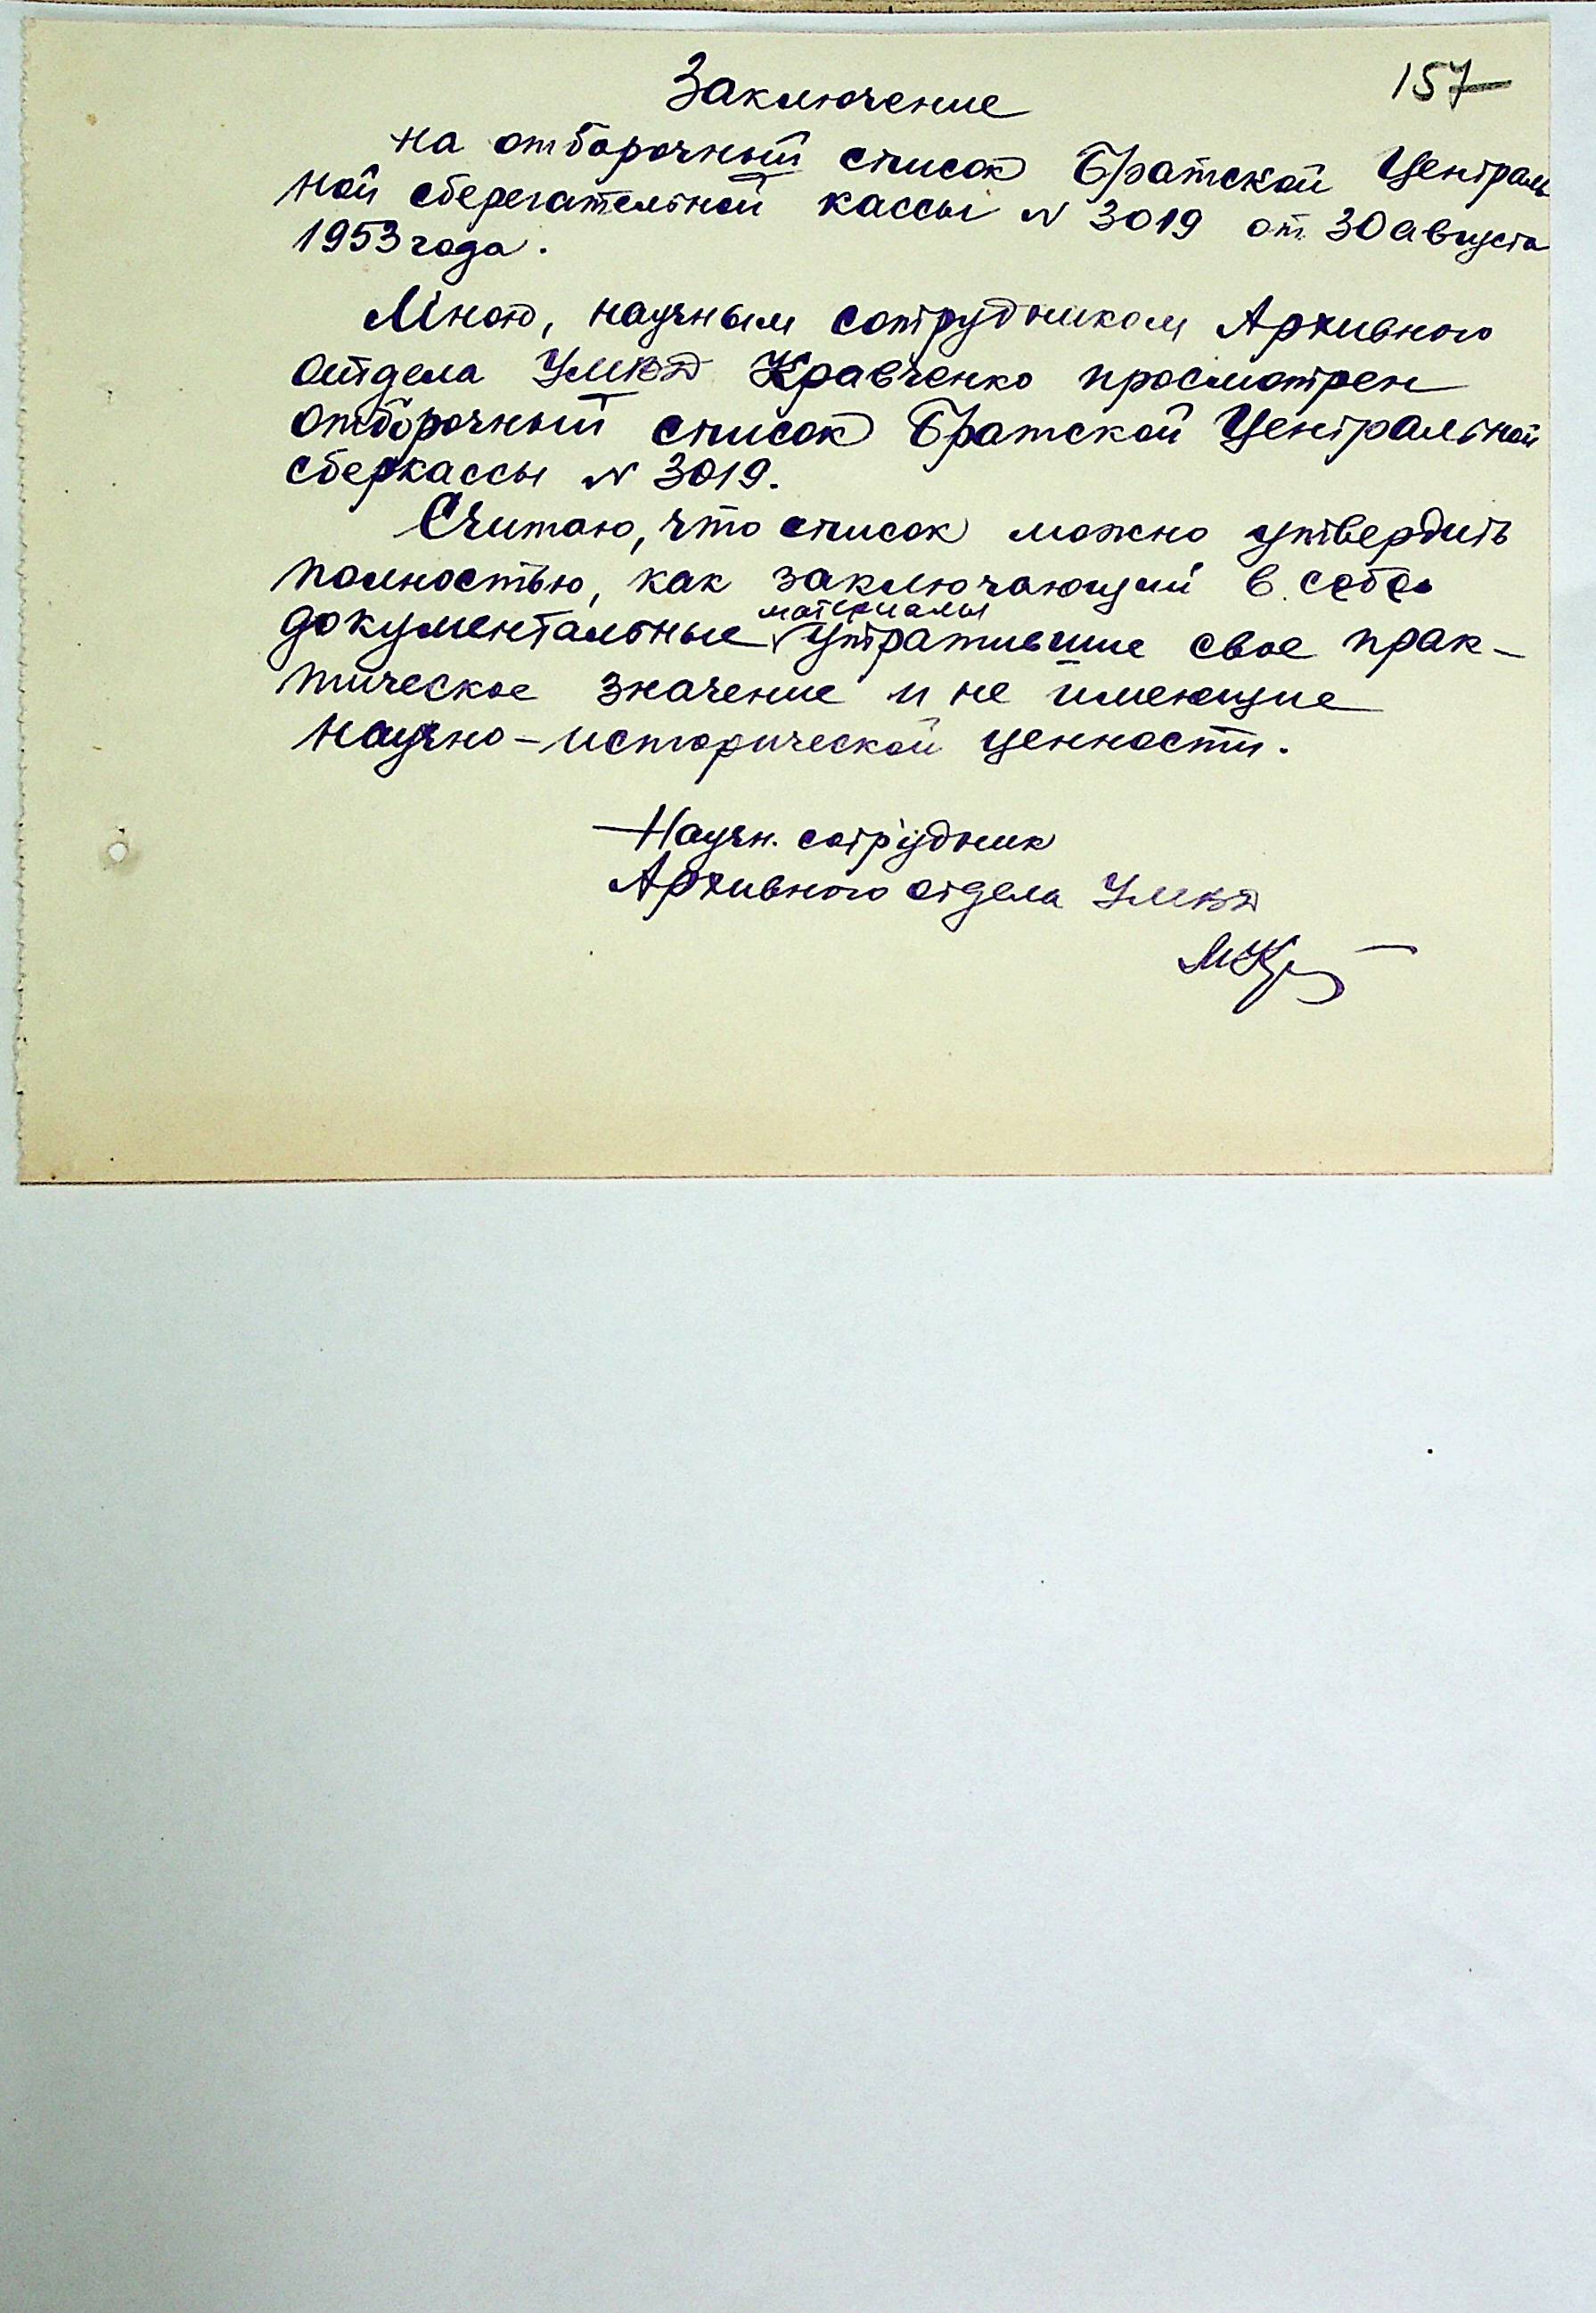 157
Заключение
на отборочный список Братской Централь
ной сберегательной кассы N 3019 от 30 августа
1953 года.
Мною, научным сотрудником Архивного
отдела УМВД Кравченко просмотрен
отборочный список Братской Центральной
сберкассы N 3019.
Считаю, что список можно утвердить
полностью, как заключающий в себе
материалы
документальные утратившие свое прак-
тическое значение и не имеющие
научно-исторической ценности.
Научн. сотрудник
Архивного отдела УМВД
МКр